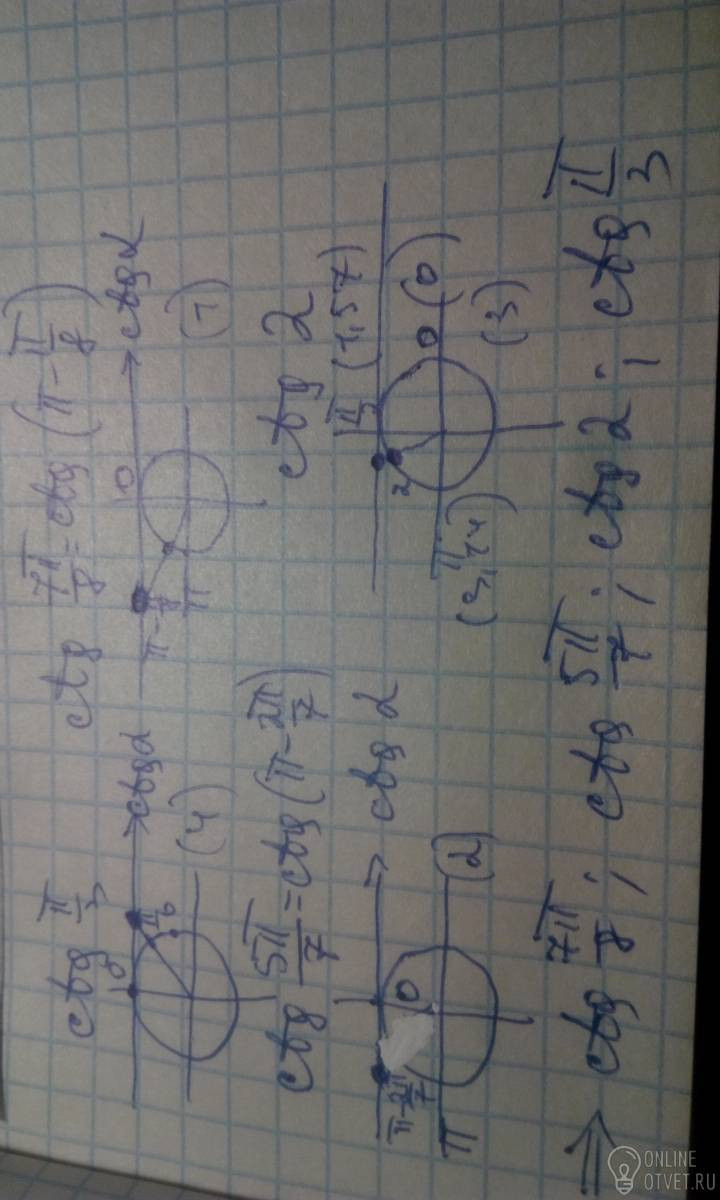 ctg π/3
0
π/6
ctgα
(4)
ctg 7π/8 = ctg (π - π/8)
0
π - π/8
π
ctgα
(1)
ctg 5π/7 = ctg (π - 2π/7)
π - 2π/7
π
0
ctg α
(2)
ctg 2
π/2 (1,57)
2
π
(3,14)
0 (0)
(3)
⇒ ctg 7π/8 ; ctg 5π/7 ; ctg 2 ; ctg π/3
ONLINE
OTVET.RU